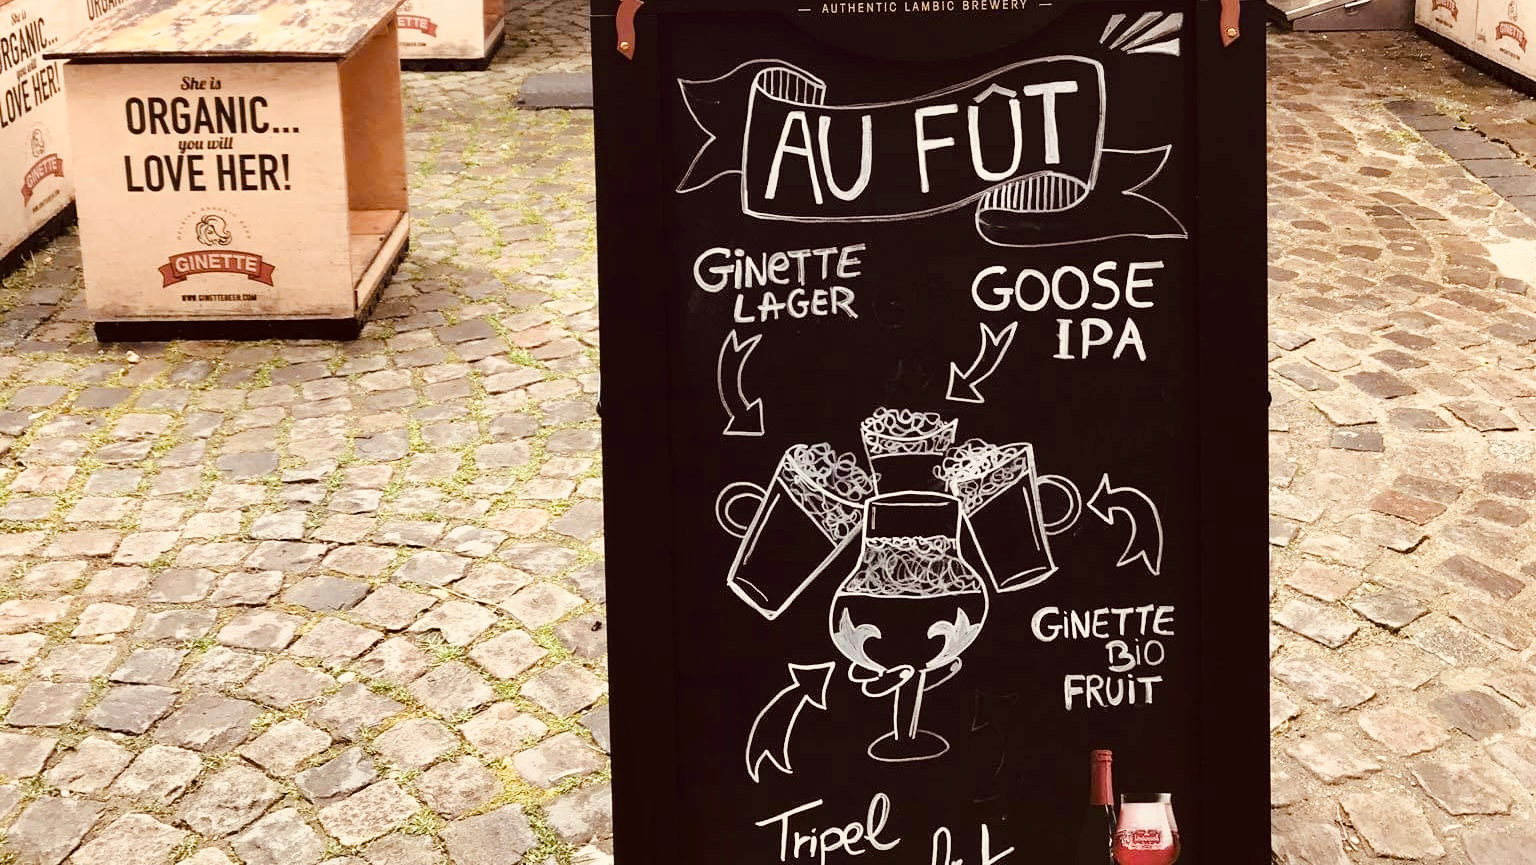 AUTHENTIC LAMBIC BREWERY
AU FÛT
GiNeTTE
LAGER
GOOSE
IPA
GiNETTE
BiO
FRUiT
Tripel
She is
ORGANIC...
you will
LOVE HER!
GINETTE
WWW.GINETTEBEER.COM
ORGANIC...
LOVE HER!
GINETTE